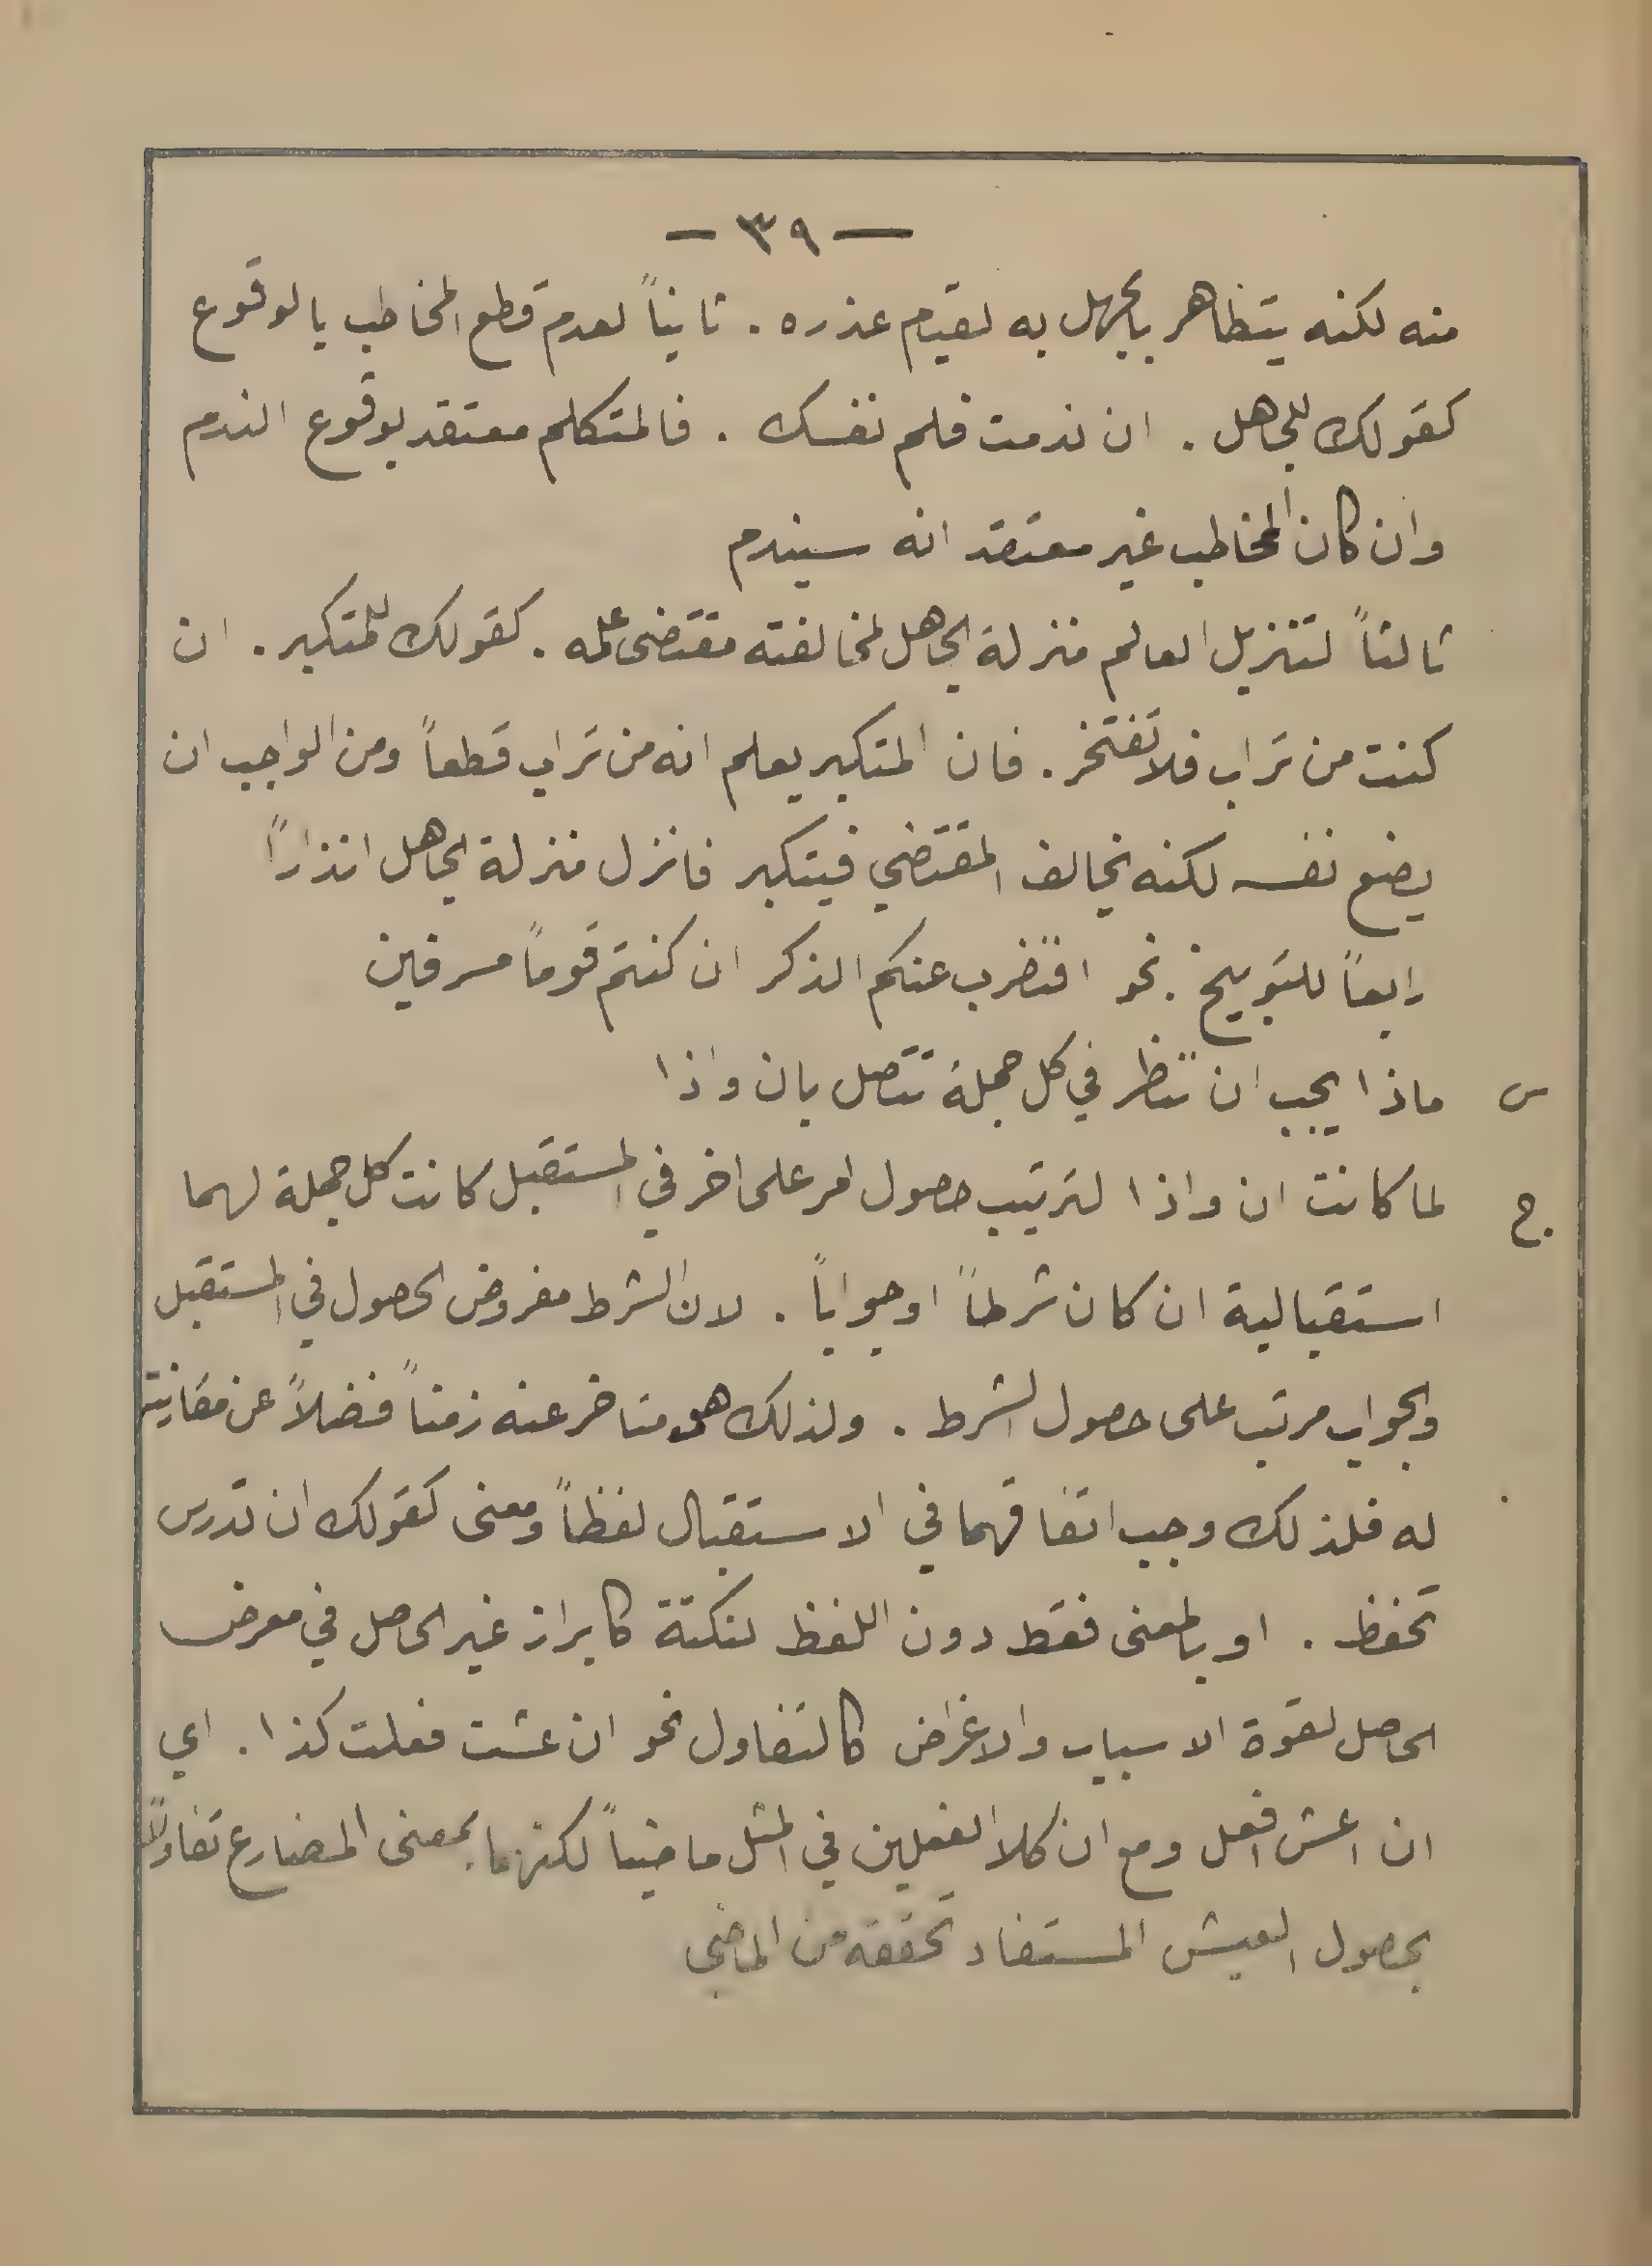 — ٣٩ —
منه لكنه يتظاهر بالجهل به لقيام عذره . ثانياً لعدم قطع المخاطب بالوقوع
كقولك للجاهل . ان ندمت فلم نفسك . فالمتكلم معتقد بوقوع الندم
وان كان المخاطب غير معتقد انه سيندم
ثالثاً لتنزيل العالم منزلة الجاهل لمخالفته مقتضى علمه . كقولك للمتكبر . ان
كنت من تراب فلا تفتخر . فان المتكبر يعلم انه من تراب قطعاً ومن الواجب ان
يضع نفسه لكنه يخالف المقتضي فيتكبر فانزل منزلة الجاهل انذاراً
رابعاً للتوبيخ . نحو افنضرب عنكم الذكر ان كنتم قوماً مسرفين
س ماذا يجب ان تنظر في كل جملة تتصل بان واذا
ج . لما كانت ان واذا لترتيب حصول امر على اخر في المستقبل كانت كل جملة لهما
استقبالية ان كان شرطاً او جواباً . لان الشرط مفروض الحصول في المستقبل
والجواب مرتب على حصول الشرط . ولذلك هو متاخر عنه زمناً فضلاً عن مقارنته
له فلذلك وجب اتفاقهما في الاستقبال لفظاً ومعنى كقولك ان تدرس
تحفظ . او بالمعنى فقط دون اللفظ لنكتة كابراز غير الحاصل في معرض
الحاصل لقوة الاسباب والاغراض كالتفاول نحو ان عشت فعلت كذا . اي
ان اعش افعل ومع ان كلا الفعلين في المثل ماضياً لكنهما بمعنى المضارع تفاولاً
بحصول العيش المستفاد تحققه من الماضي